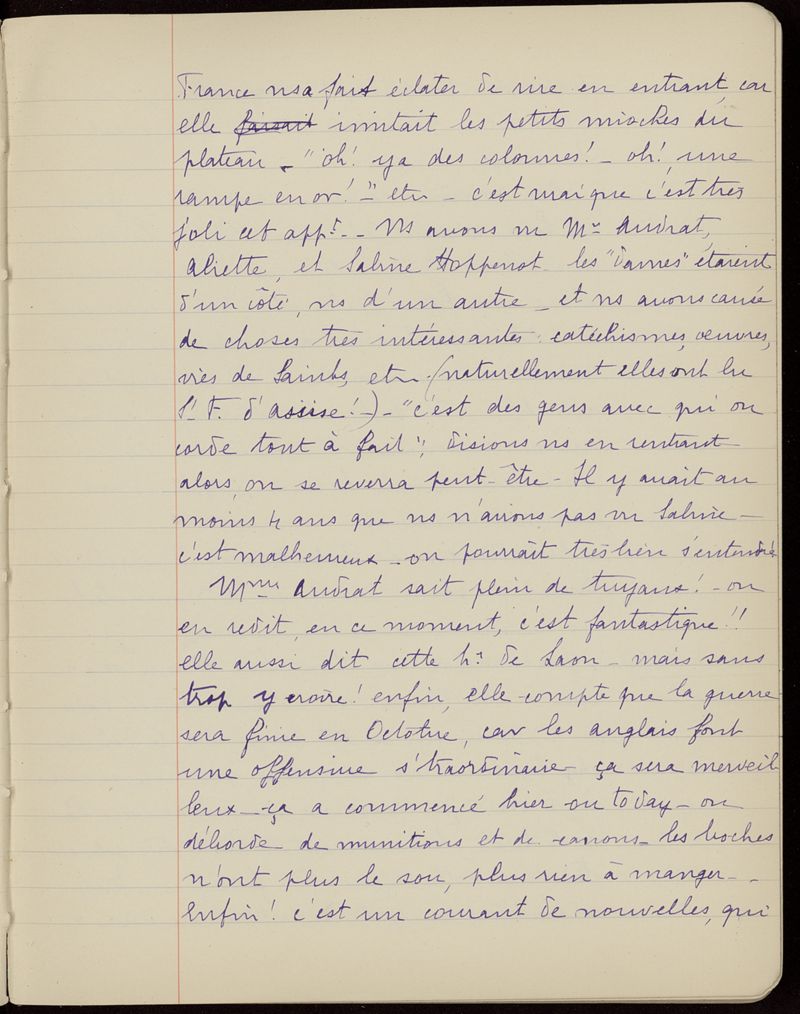 France ns a fait éclater de rire en entrant, car
elle faisait imitait les petits mioches du
plateau - "oh! ya des colonnes! - oh! une
rampe en or! -" etc - c'est vrai que c'est très
joli cet appt. - Ns avons vu Me Audrat,
Aliette, et Sabine Hoppenot. les "dames" étaient
d'un côté, ns d'un autre - et ns avons causé
de choses très intéressantes : catéchismes, œuvres,
vies de Saints, etc - (naturellement elles ont lu
St F. d'Assise! -) - "c'est des gens avec qui on
corde tout à fait", disions ns en rentrant -
alors, on se reverra peut-être - Il y avait au
moins 4 ans que ns n'avions pas vu Sabine -
c'est malheureux - on pourrait très bien s'entendre
Mme Audrat sait plein de tuyaux! - on
en redit, en ce moment, c'est fantastique!!
elle aussi dit cette hre de Laon - mais sans
trop y croire! enfin, elle compte que la guerre
sera finie en Octobre, car les anglais font
une offensive s'traordinaire - ça sera merveil
leux - ça a commencé hier ou to day - on
déborde de munitions et de canons - les boches
n'ont plus le sou, plus rien à manger - -
Enfin! c'est un courant de nouvelles, qui